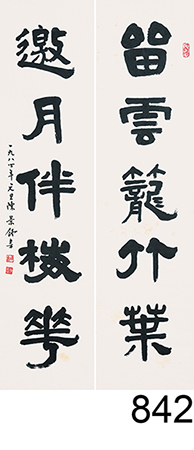 留雲籠竹葉
邀月伴梅花
一九八七年元旦陳景舒書
842